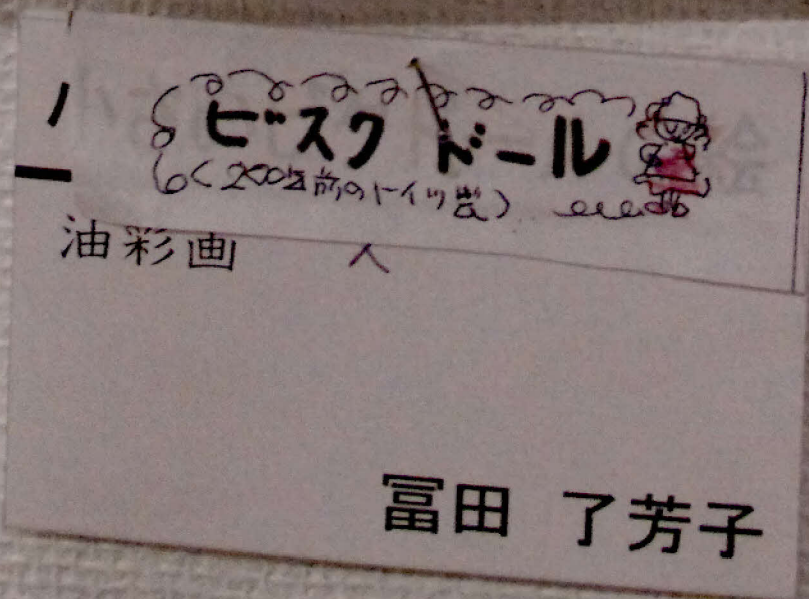 ビスクドール
(200年前のドイツ製)
油彩画
冨田 了芳子